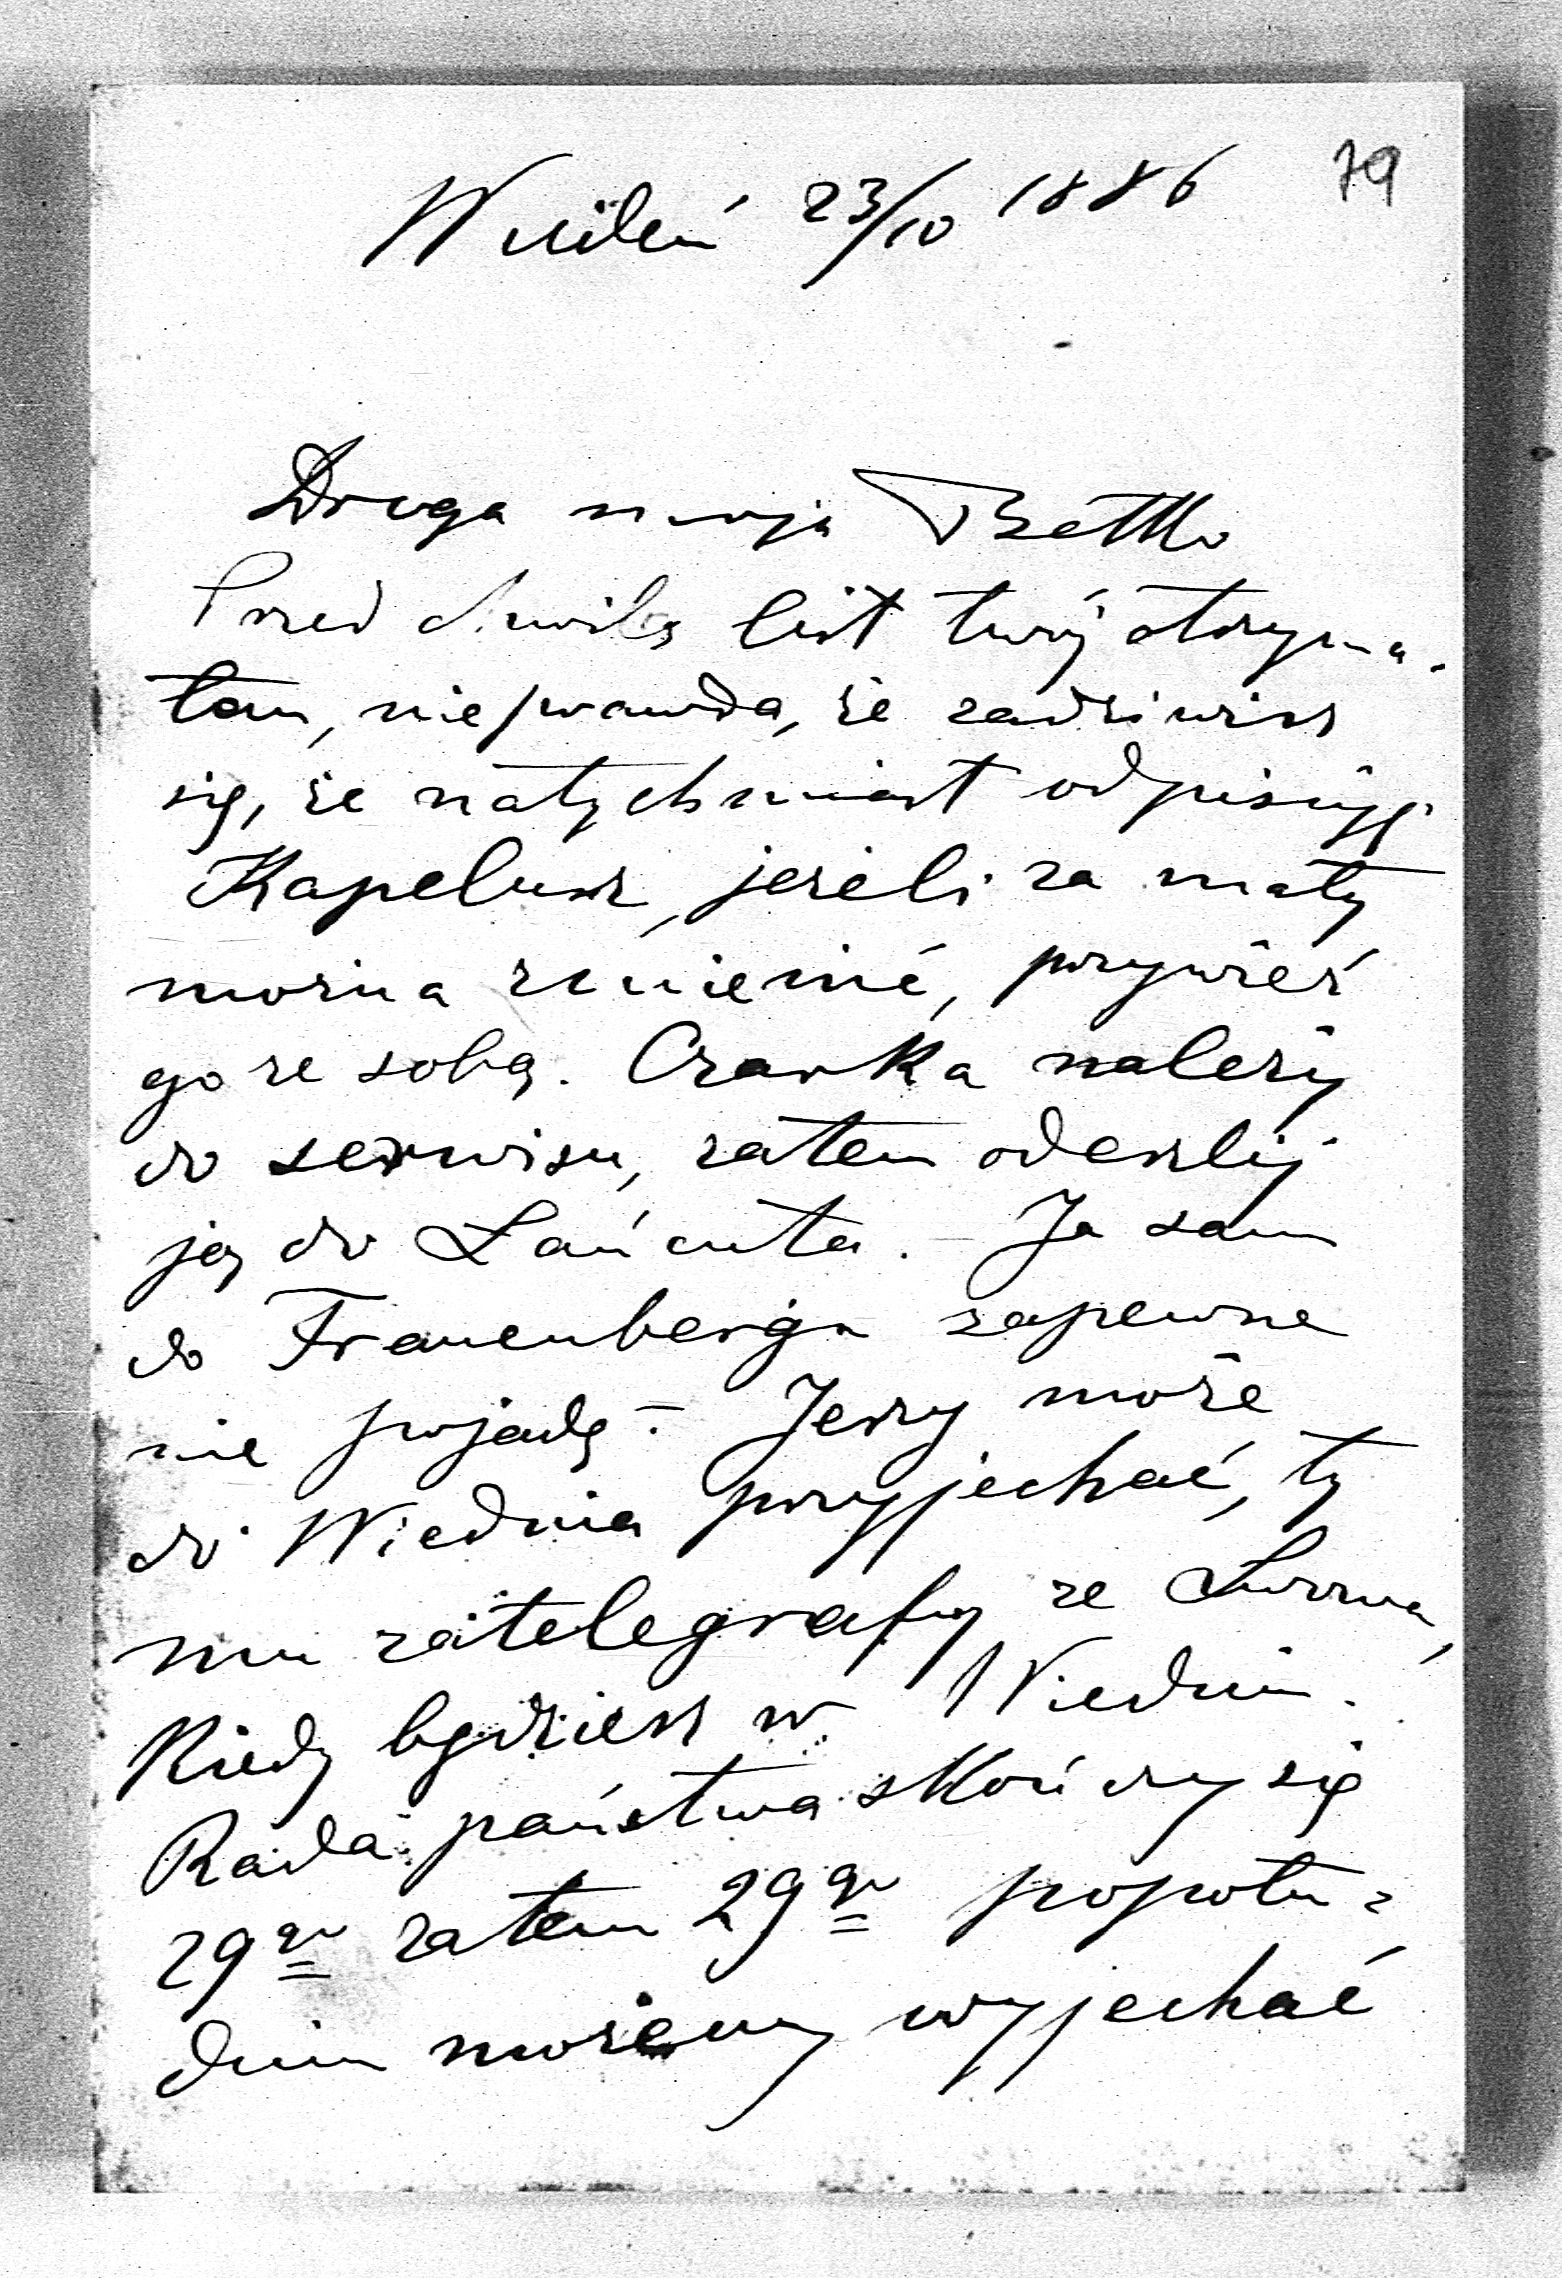 79
Wiedeń 23/10 1886
Droga moja Betko
Przed chwilą list twój otrzyma-
łem, nieprawda, że zadziwisz
się, że natychmiast odpisuję
Kapelusz, jeżeli za mały
można zmienić, przywieź
go ze sobą. Czarka należy
do serwisu, zatem odeszlij
ją do Łańcuta. – Ja sam
do Frauenberga zapewne
nie pojadę – Jerzy może
do Wiednia przyjechać, ty
mu zatelegrafuj ze Lwowa,
Kiedy będziesz w Wiedniu.
Rada państwa skończy się
29go zatem 29go popołu-
dniu możemy wyjechać